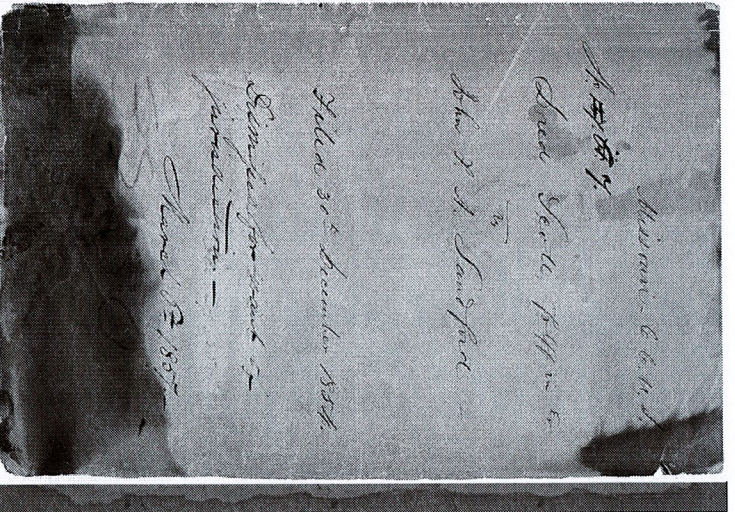 Missouri C. C. U. S.
No. 7
Dred Scott, Plff in Er
vs
John F. A. Sandford
Filed 30th December 1854.
Dismissed for want of
jurisdiction.—
March 6th 1857—